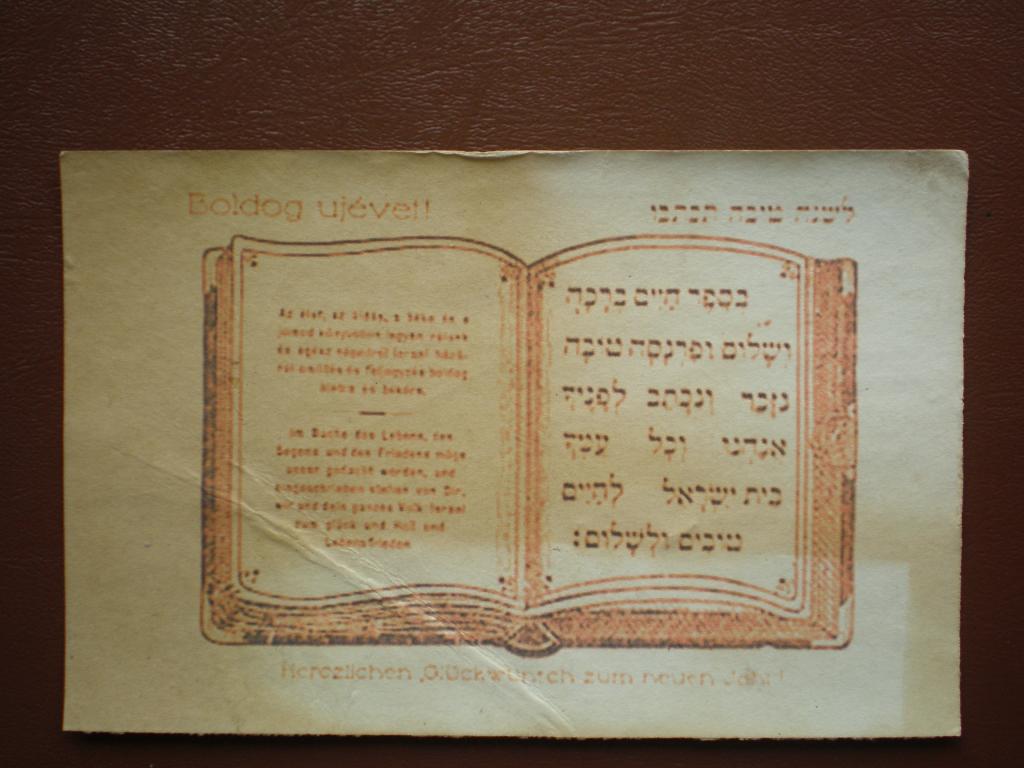 Boldog ujévet!
לשנה טובה תכתבו
Az élet, az áldás, a béke és a
könyvében legyen
és egész Izrael
és feljegyzés boldog
életre és békére.
Im Buche des Lebens, des
Segens und des Friedens möge
unser gedacht werden, und
eingeschrieben stehen von Dir,
wir und dein ganzes Volk Israel
zum glück und Heil und
Lebensfrieden
בְּסֵפֶר חַיִּים בְּרָכָה
וְשָׁלוֹם וּפַרְנָסָה טוֹבָה
נִזָּכֵר וְנִכָּתֵב לְפָנֶיךָ
אֲנַחְנוּ וְכָל עַמְּךָ
בֵּית יִשְׂרָאֵל לְחַיִּים
טוֹבִים וּלְשָׁלוֹם:
Herczlichen Glückwuntch zum neuen Jahr!